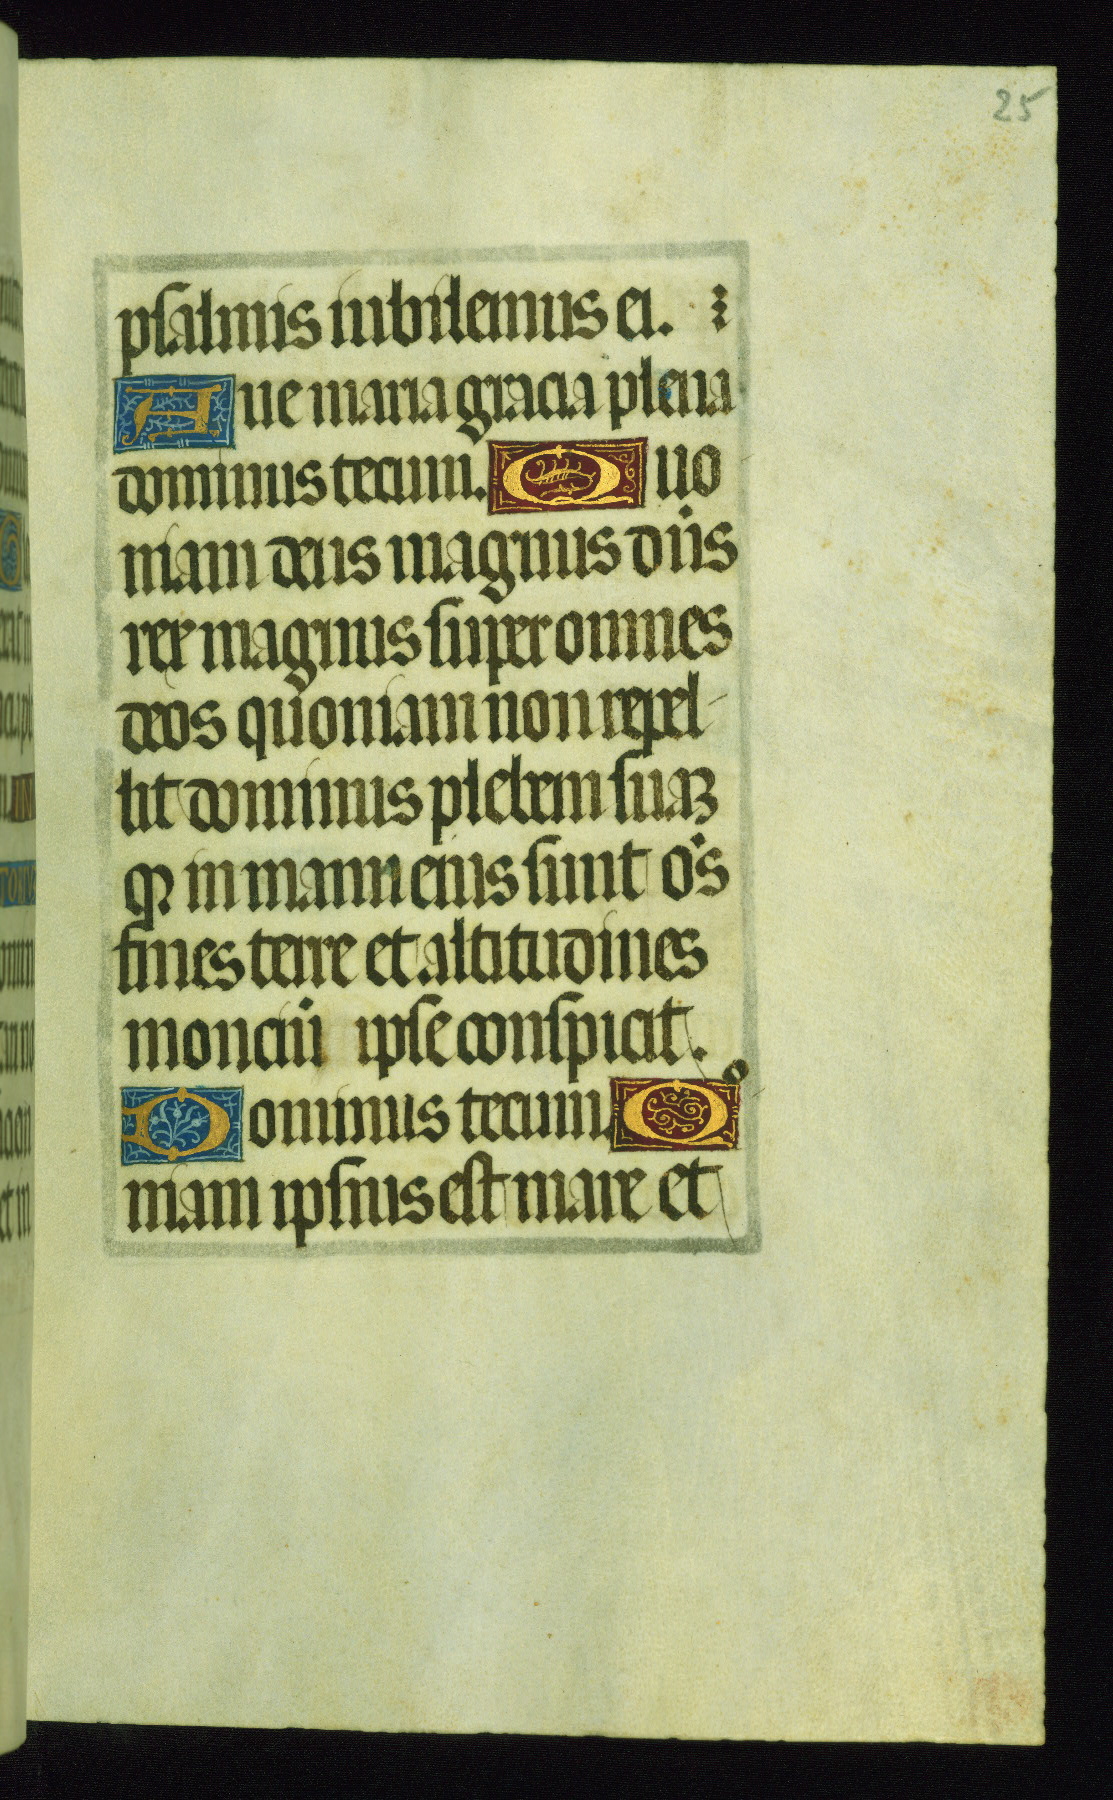 25
psalmis iubilemus ei.
Aue maria gracia plena
dominus tecum. Quo
niam deus magnus dn̄s
rex magnus super omnes
deos quoniam non repel-
lit dominus plebem suaꝫ
qꝛ in manu eius sunt om̄s
fines terre et altitudines
monciū ipse conspicit.
Dominus tecum. Qo
niam ipsius est mare et